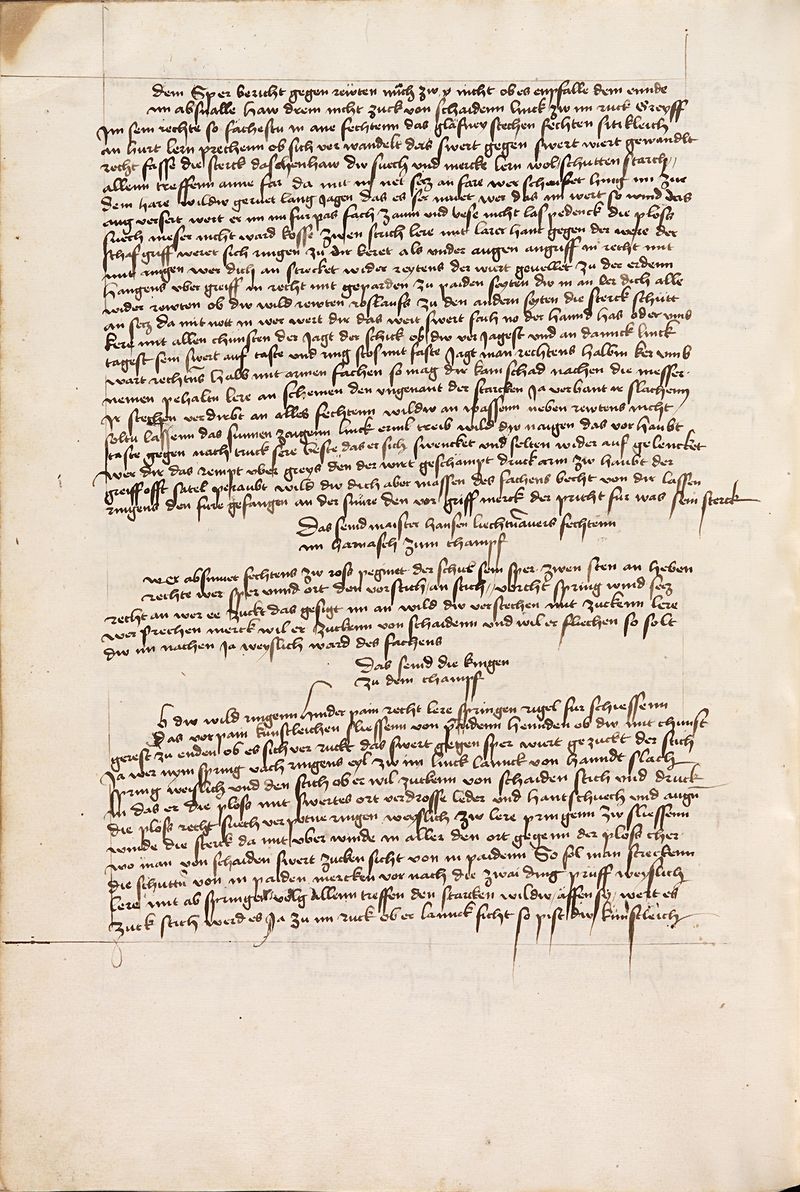 dem Sper bericht gegen rewten nuch zw y nicht ob es empfalle dem ennde
im abfnalle haw drein nicht zuck von schaidenn linck zw im ruck Greyff
Im sein rechte so fachestu in ane fechtenn das glafney stechen fechten sitikleich
an hurt lern prechenn ob sich ver wandelt das swert gegen swert wiert gewandlt
recht fasse die sterck daschenhaw dw suech und mercke lern wol schutten starch
allenn treffenn anne far da mit im net secz an fare wer schaufet hing im zue
dem hare wildw geruet lang Jagen das es ser muet wer das im wert so wind das
aug versert wert er im im fur pas fach zaum und vese nicht las pedenck die ploss
suech meser nicht ward kosse zwen strich lere mit larer hant gegen der were der
schaf griff weret sich ringen zu dir keret als under augen angriff in recht mit
mit ringen wer dich an strecket wider reytens der wirt gevellet zu der erdenn
hangens uber greiff in recht mit geparden zu paiden seyten dw in an ler dich alle
wider rewten ob dw wild rewten rosslauffs zu den andern seyten die sterck schutt
an secz da mit nott in wer wert dir das weit swert fach no der hannd has oder umb
kere mit allen chunsten der Jagt der schick ob dw ver Jagest und an danck linck
tagest sein swert auf taste und ring stos mit faste Jagt man rechtens halbm ker umb
wart rechtns halb mit armen fachen so mag dir kain schad nachen die messer
nemen pehaltn lere an schemen den ungenant der starcken Ja verhant ir slachenn
Ir stechen verdirbt an alles fechtenn wildw an massenn neben rewtens nicht
seltn lassenn das sunnen zaygenn linck erml treib wild dw naugen das vor haubt
taste gegen nach truck sere veste das er sich swencket und selten wider auf gelencket
wer dir das rempt uber greys den der wirt geschampt druck arm zw haubt der
greiff offt satel peraubt wild dw dich aber massen des fachens becht von dir lassen
ringens den fure gefangen an der snure den vor griff merck der pricht fur was sein sterck
Das seind maister hansen liechtnauers fechtenn
im harnasch zum champf
wer absinnet fechtens zw ross peginet der schick sein sper zwen sten an heben
rechte wer sper unnd ort den vorstich an stich vorcht spring wind secz
recht an wer ee zuckt das gesigt im an wild dw vorstechen mit zuckenn lere
wer sprechen merck wil er zuckenn von schaidenn und wil er fliechen so solt
dw im nachen Ja weyslich ward des fachens
Das seind die Ringen
zu dem champf
b dw wild ringenn hinder pain recht lere springen rigel fur schiessenn
Das vor pain kunstleichen sliessenn von paidenn hennden ob dw mit chunst
gerest zu enden ob es sich ver ruckt das swert gegen sper wurt gezuckt der stich
Ja wer nym spring vach ringens eyl zw im linck lannck von hanndt slach
spring weyslich und den stich ob er wil zuckenn von schaiden stich und druck
in das er die ploss mit swertes ort verdrosse leder und hantschuech und augn
die ploss recht suech verpotne ringen weyslich zw lere pringenn zw sliessenn
winde die sterck da mit uber winde in aller den ort gegenn der ploss cher
wo man von schaiden swert zucken sicht von in paidenn So sol man streckenn
die schuttn von in paiden mercken vor nach die zwai ding pruff weyslich
lere mit ab springen volg allenn treffen den starcken wildw affen sy wert es
zuck stich werd es Ja zu im ruck ob er lannck ficht so pist dw kunstleich